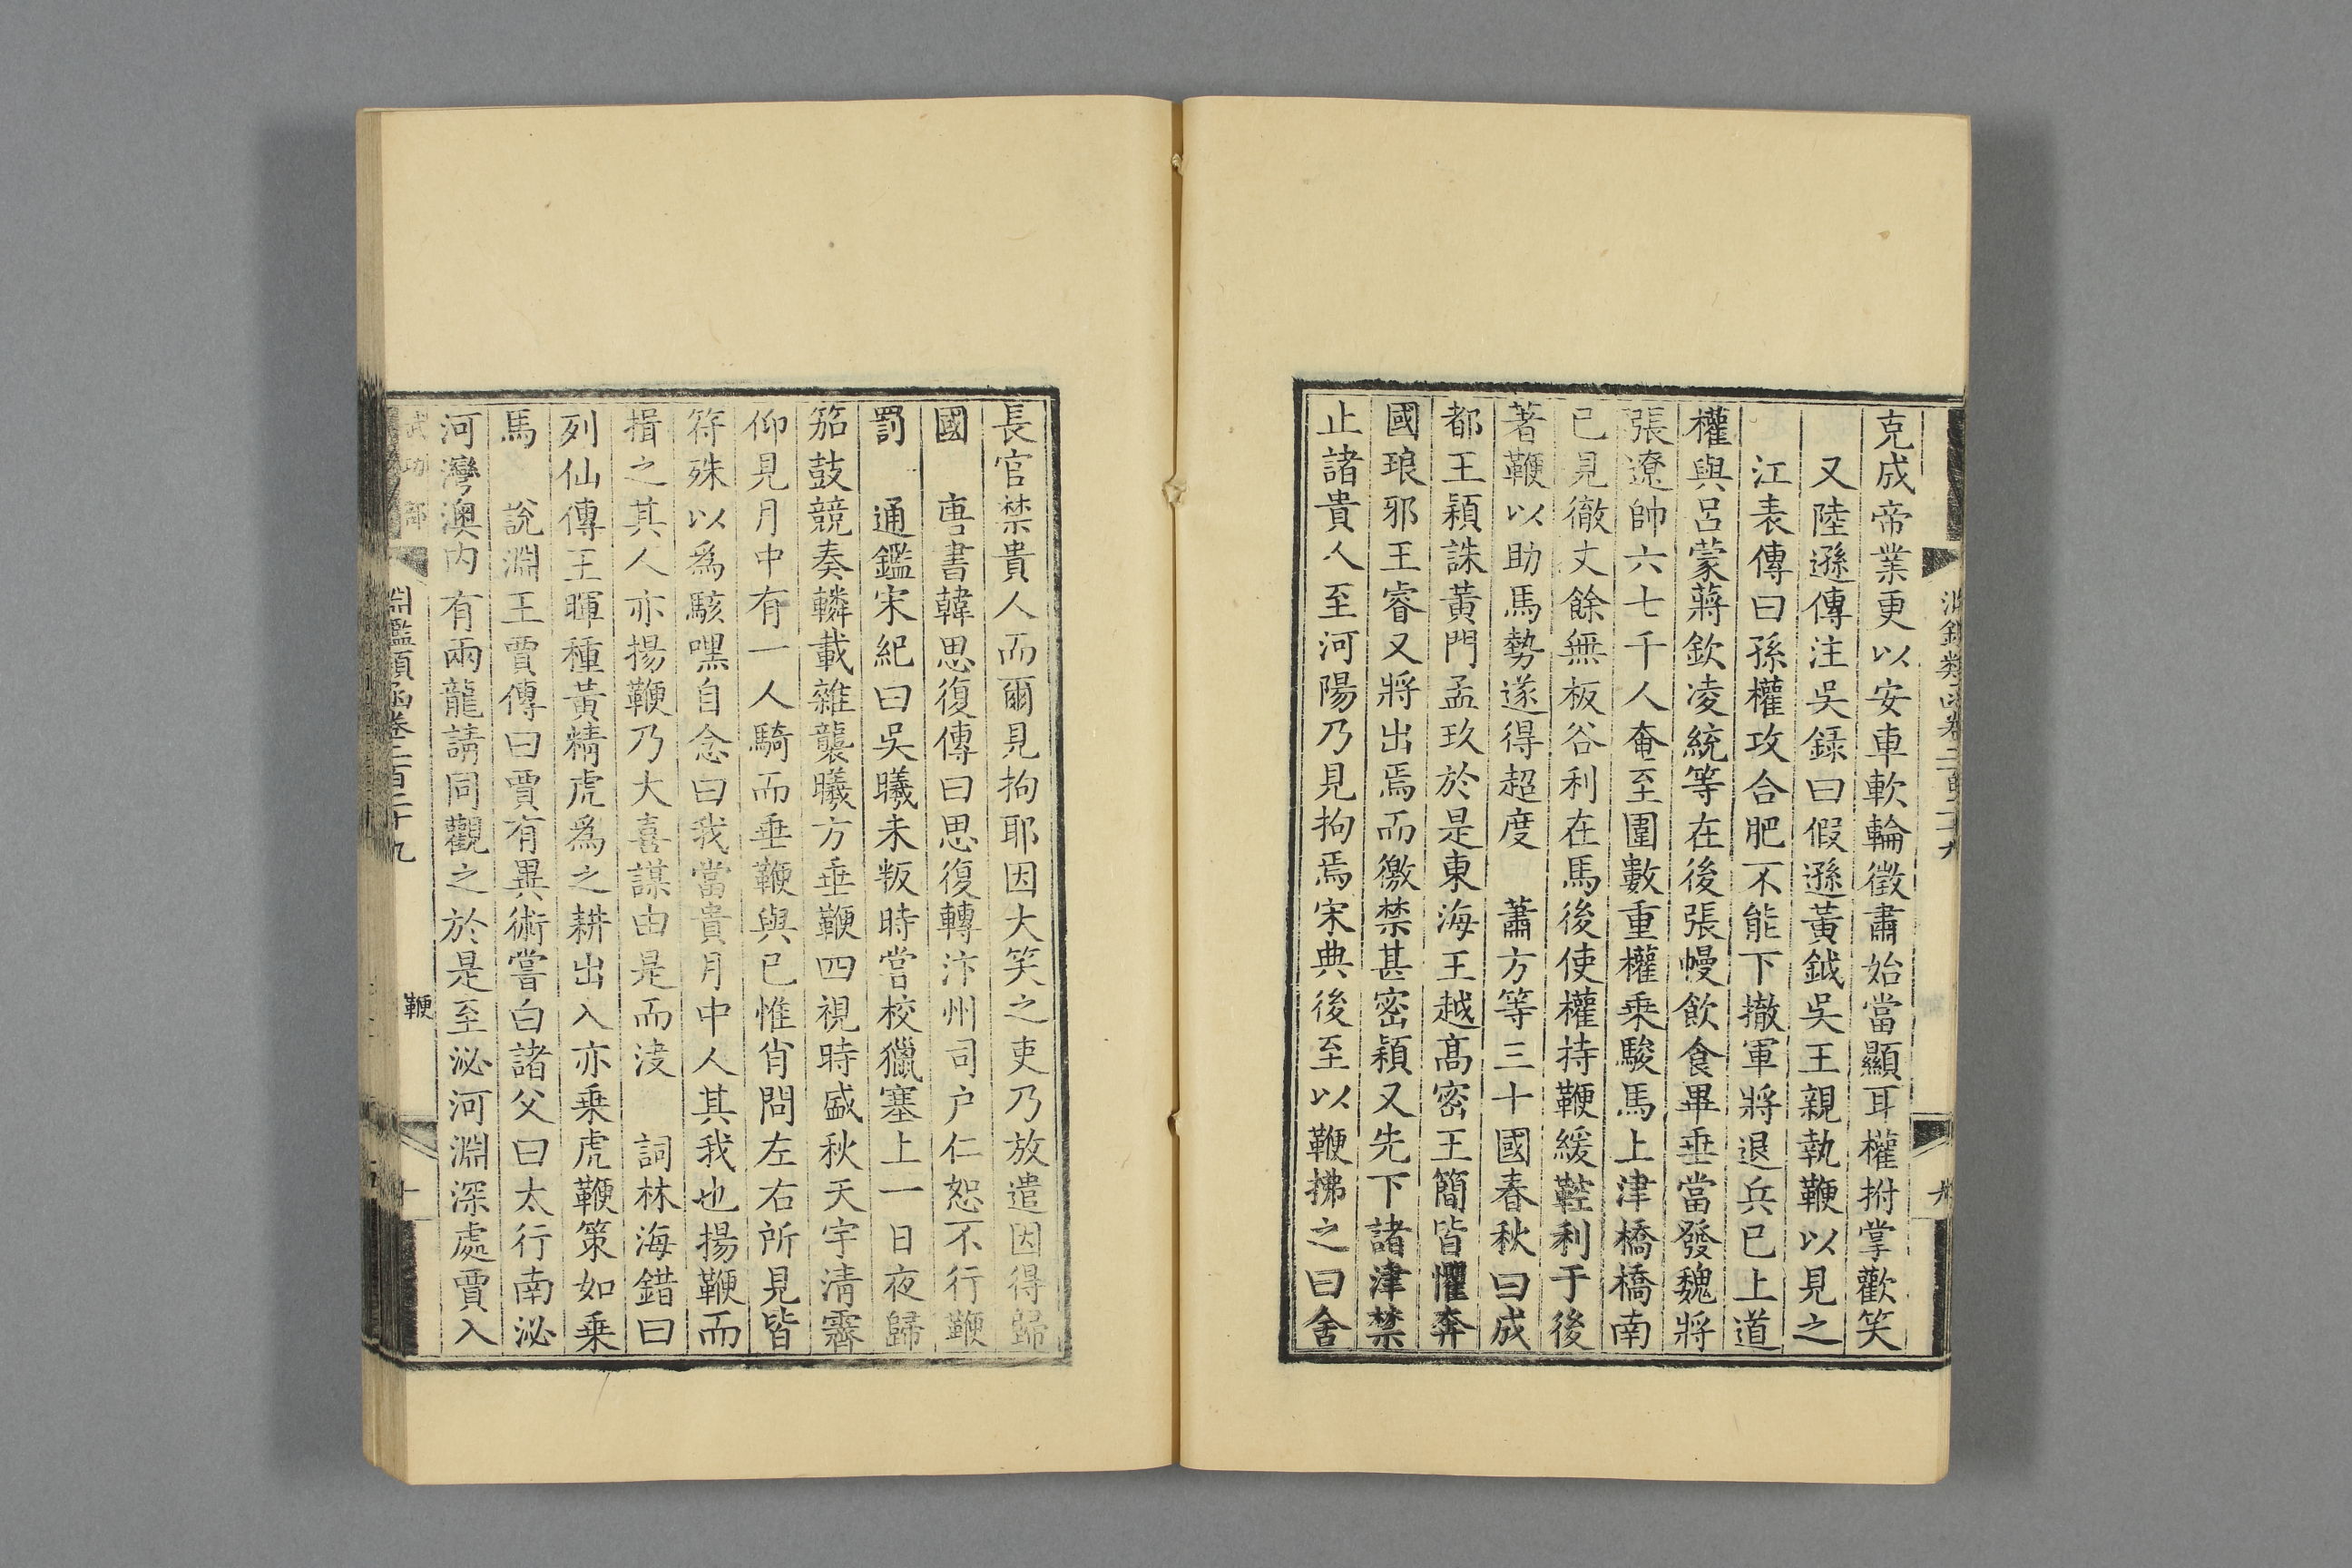 克成帝業更以安車軟輪徵肅始當顯耳權拊掌歡笑
又陸遜傳注吳錄曰假遜黃鉞吳王親執鞭以見之
江表傳曰孫權攻合肥不能下撤軍將退兵已上道
權與呂蒙蔣欽凌統等在後張幔飲食畢垂當發魏將
張遼帥六七千人奄至圍數重權乘駿馬上津橋橋南
已見徹丈餘無板谷利在馬後使權持鞭緩鞚利于後
著鞭以助馬勢遂得超度　蕭方等三十國春秋曰成
都王穎誅黃門孟玖於是東海王越高密王簡皆懼奔
國琅邪王睿又將出焉而徼禁甚密穎又先下諸津禁
止諸貴人至河陽乃見拘焉宋典後至以鞭拂之曰舍
長官禁貴人而爾見拘耶因大笑之吏乃放遣因得歸
國　唐書韓思復傳曰思復轉汴州司户仁恕不行鞭
罰　通鑑宋紀曰吳曦未叛時嘗校獵塞上一日夜歸
笳鼓競奏轔載雜襲曦方垂鞭四視時盛秋天宇清霽
仰見月中有一人騎而垂鞭與已惟肖問左右所見皆
符殊以爲駭嘿自念曰我當貴月中人其我也揚鞭而
揖之其人亦揚鞭乃大喜謀由是而決　詞林海錯曰
列仙傳王暉種黃精虎爲之耕出入亦乘虎鞭策如乘
馬　說淵王賈傳曰賈有異術嘗白諸父曰太行南泌
河灣澳内有兩龍請同觀之於是至泌河淵深處賈入
武功部　淵鑑類函卷二百二十九　鞭　十